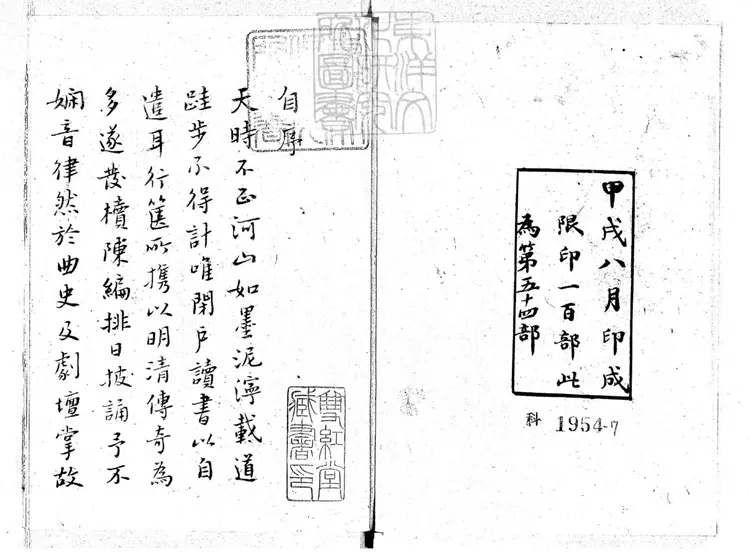 甲戌八月印成
限印一百部此
為第五十四部
科 1954-7
自序
天時不正河山如墨泥濘載道
跬步不得計唯閉戶讀書以自
遣耳行篋所携以明清傳奇為
多遂發櫝陳編排日披誦予不
嫻音律然於曲史及劇壇掌故
雙紅堂
藏書印